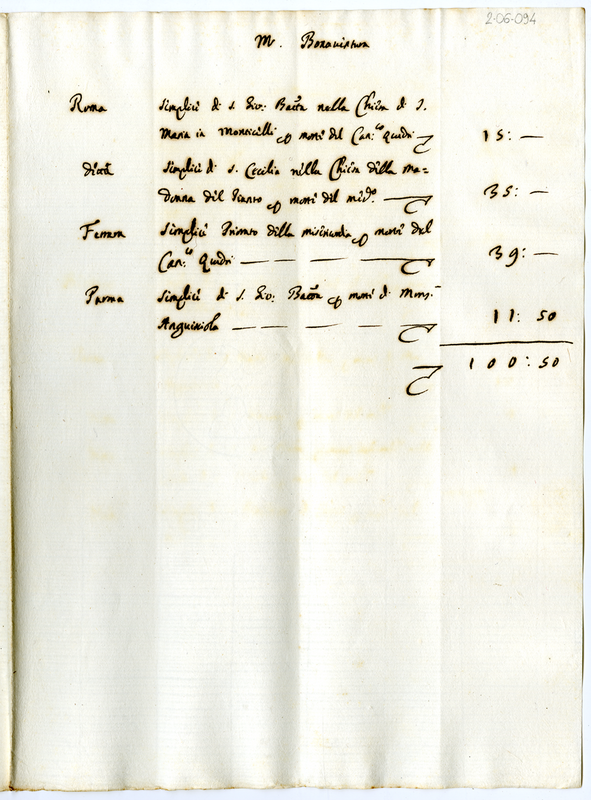 2-06-094
M. Bonaventura
Roma Simplici di S. Gio: Batta nella Chiesa di S.
Maria in Monticelli p morte del Can:co Quadri 15: —
detta Simplici di S. Cecilia nella Chiesa della Ma=
donna del Pianto p morte del med.o — 35: —
Ferrara Simplici Prionto della misericordia p morte del
Can:co Quadri — — — — 39: —
Parma Simplici di S. Gio: Batta p morte di Mons.r
Anguisiola — — — — 11: 50
100: 50